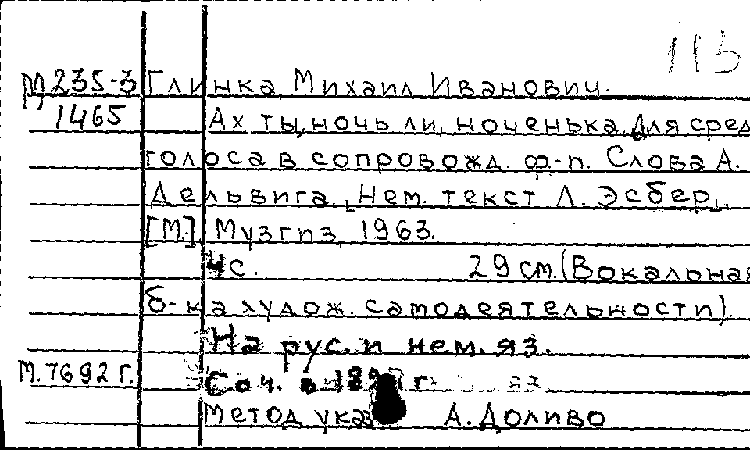 113
М 235-3 Глинка Михаил Иванович.
1465 Ах ты, ночь ли, ноченька. Для сред
голоса в сопровожд. ф-п. Слова А.
Дельвига. Нем. текст Л. Эсбер.
[М.] Музгиз 1963.
4с. 29 см. (Вокальная
б-ка худож. самодеятельности)
На рус. и нем. яз.
М. 7692 г. Соч. в г.
Метод А. Доливо